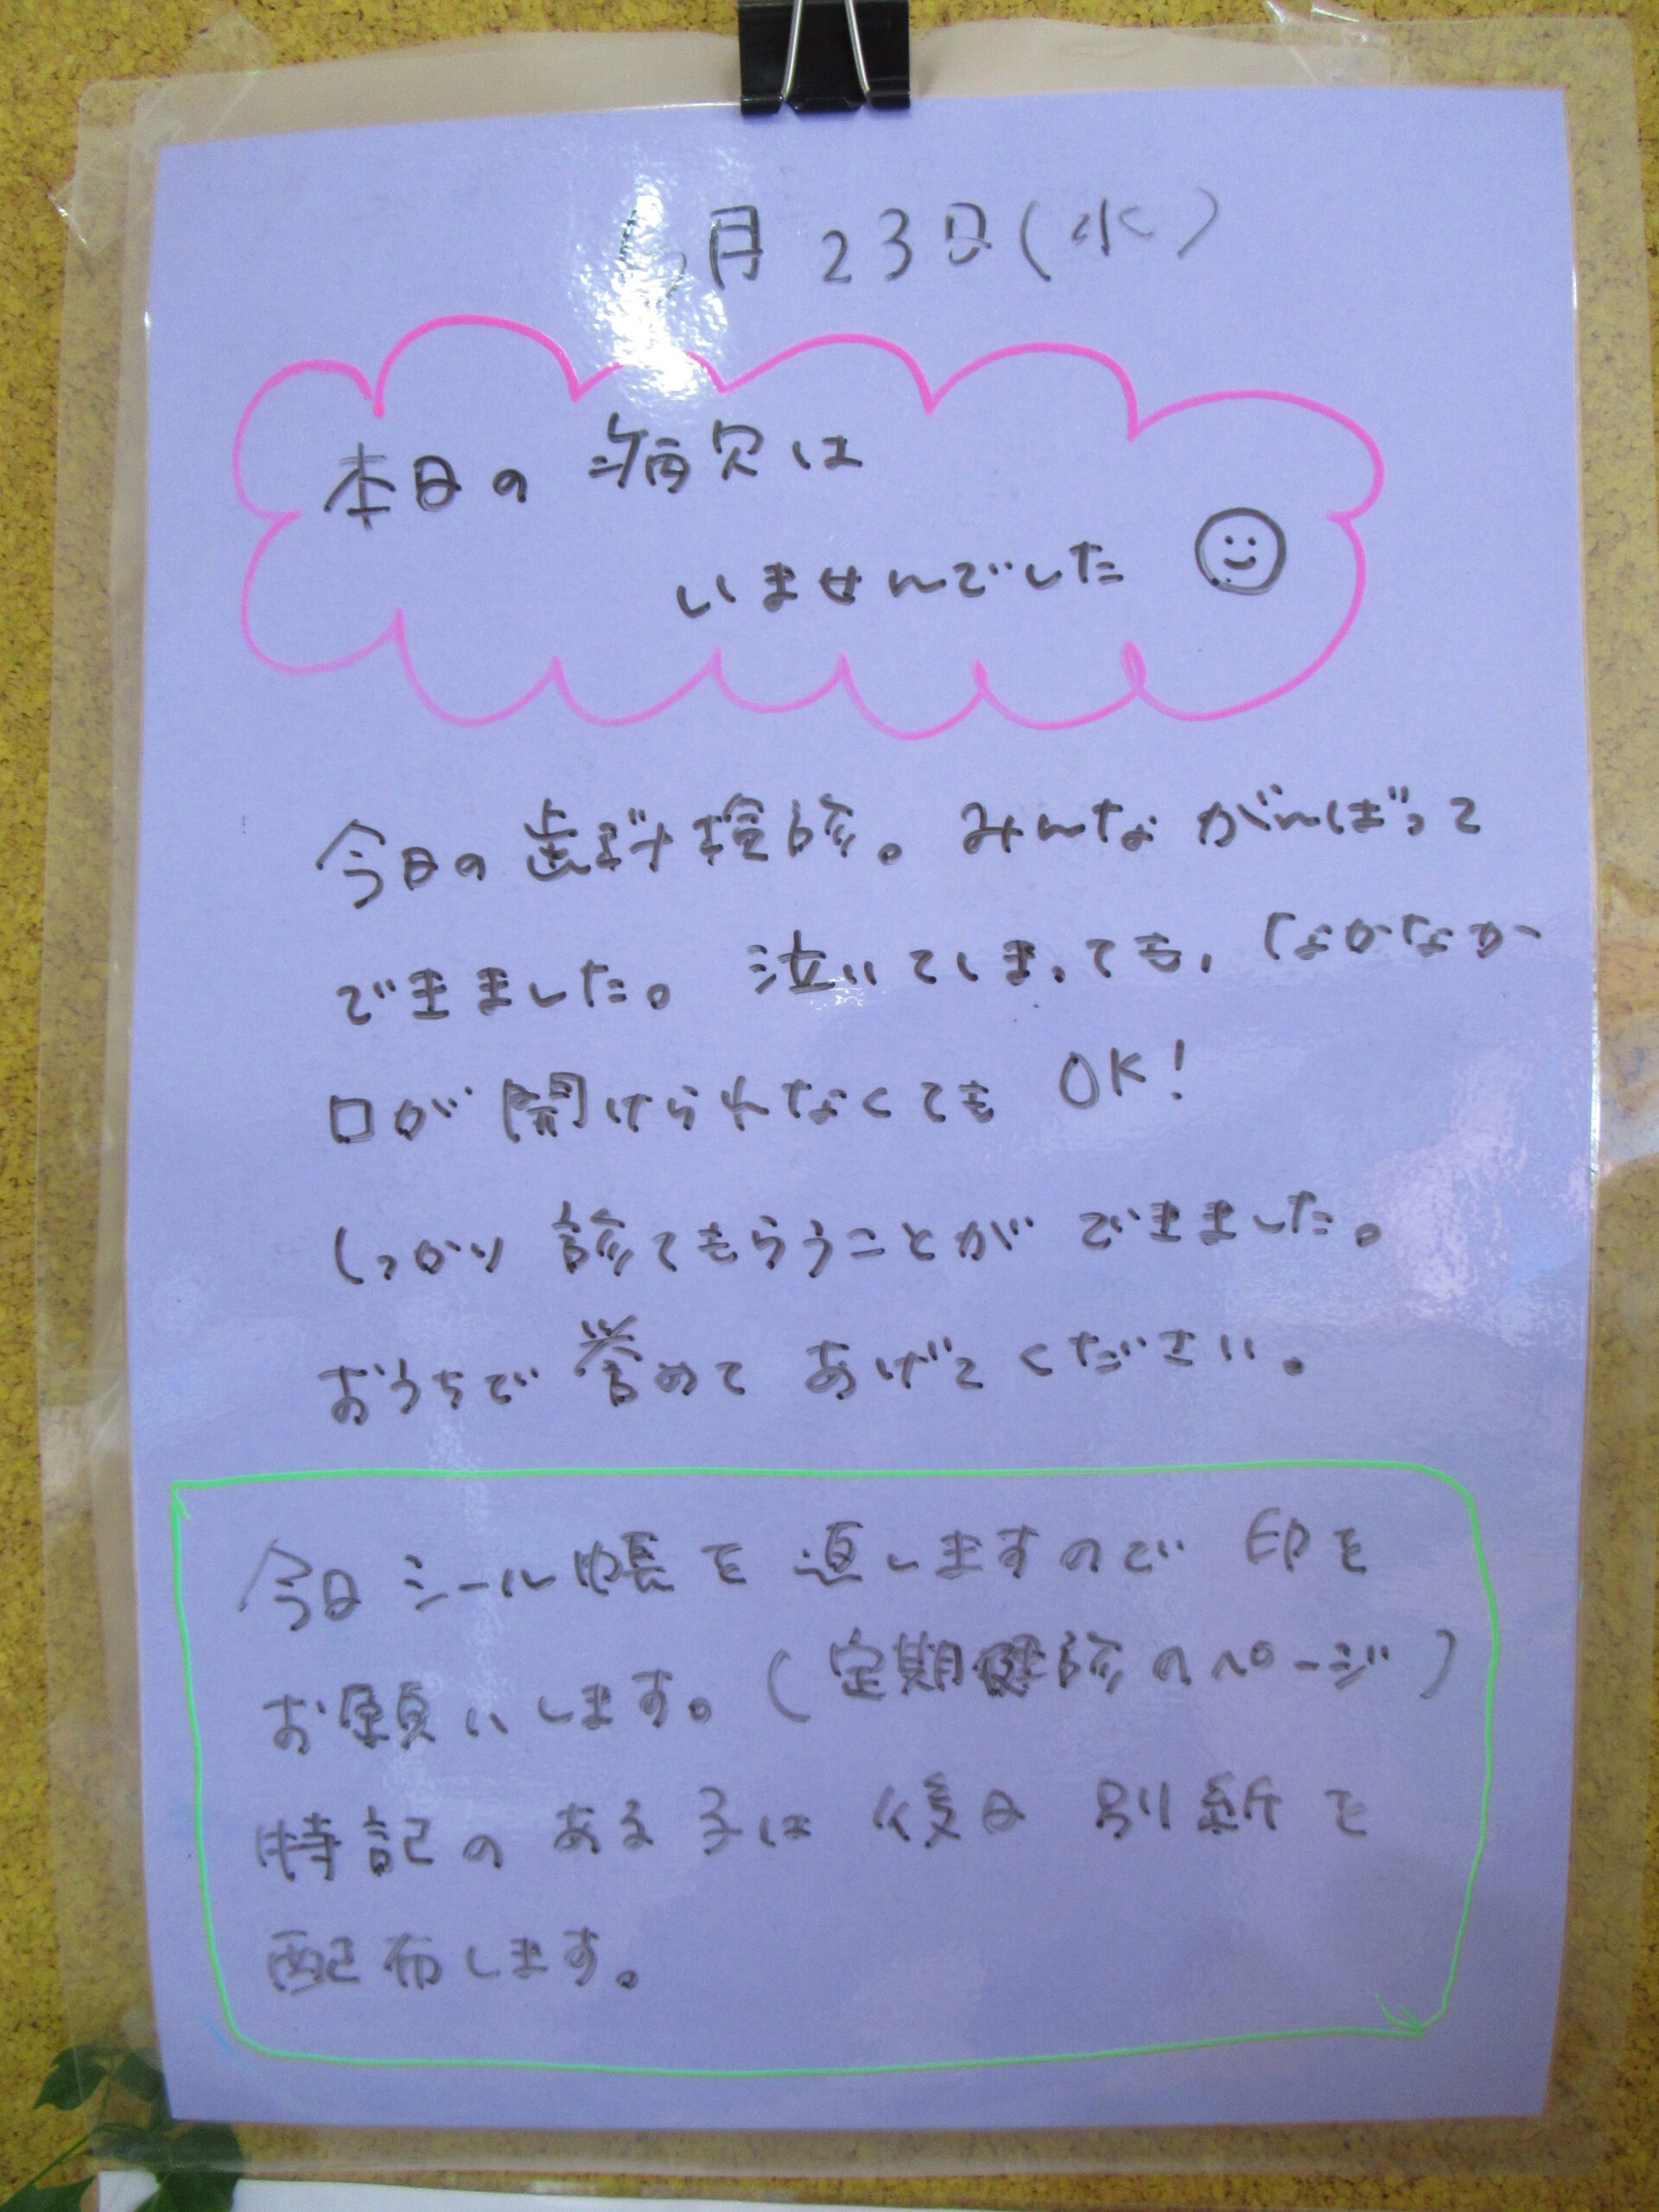 6月23日(水)
本日の病欠は
いませんでした
今日の歯科検診。みんながんばって
できました。泣いてしまっても、なかなか
口が開けられなくてもOK!
しっかり診てもらうことができました。
おうちで誉めてあげてください。
今日シール帳を返しますので印を
お願いします。(定期健診のページ)
特記のある子は後日別紙を
配布します。